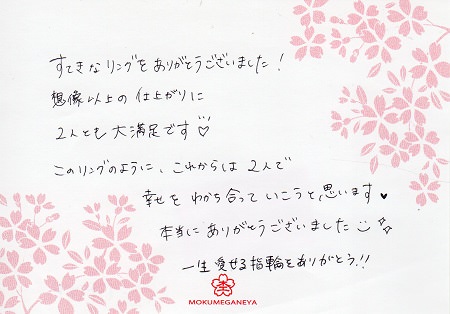 すてきなリングをありがとうございました!
想像以上の仕上がりに
2人とも大満足です♡
このリングのように、これからは2人で
幸せをわかち合っていこうと思います♥
本当にありがとうございました
一生愛せる指輪をありがとう!!
MOKUMEGANEYA